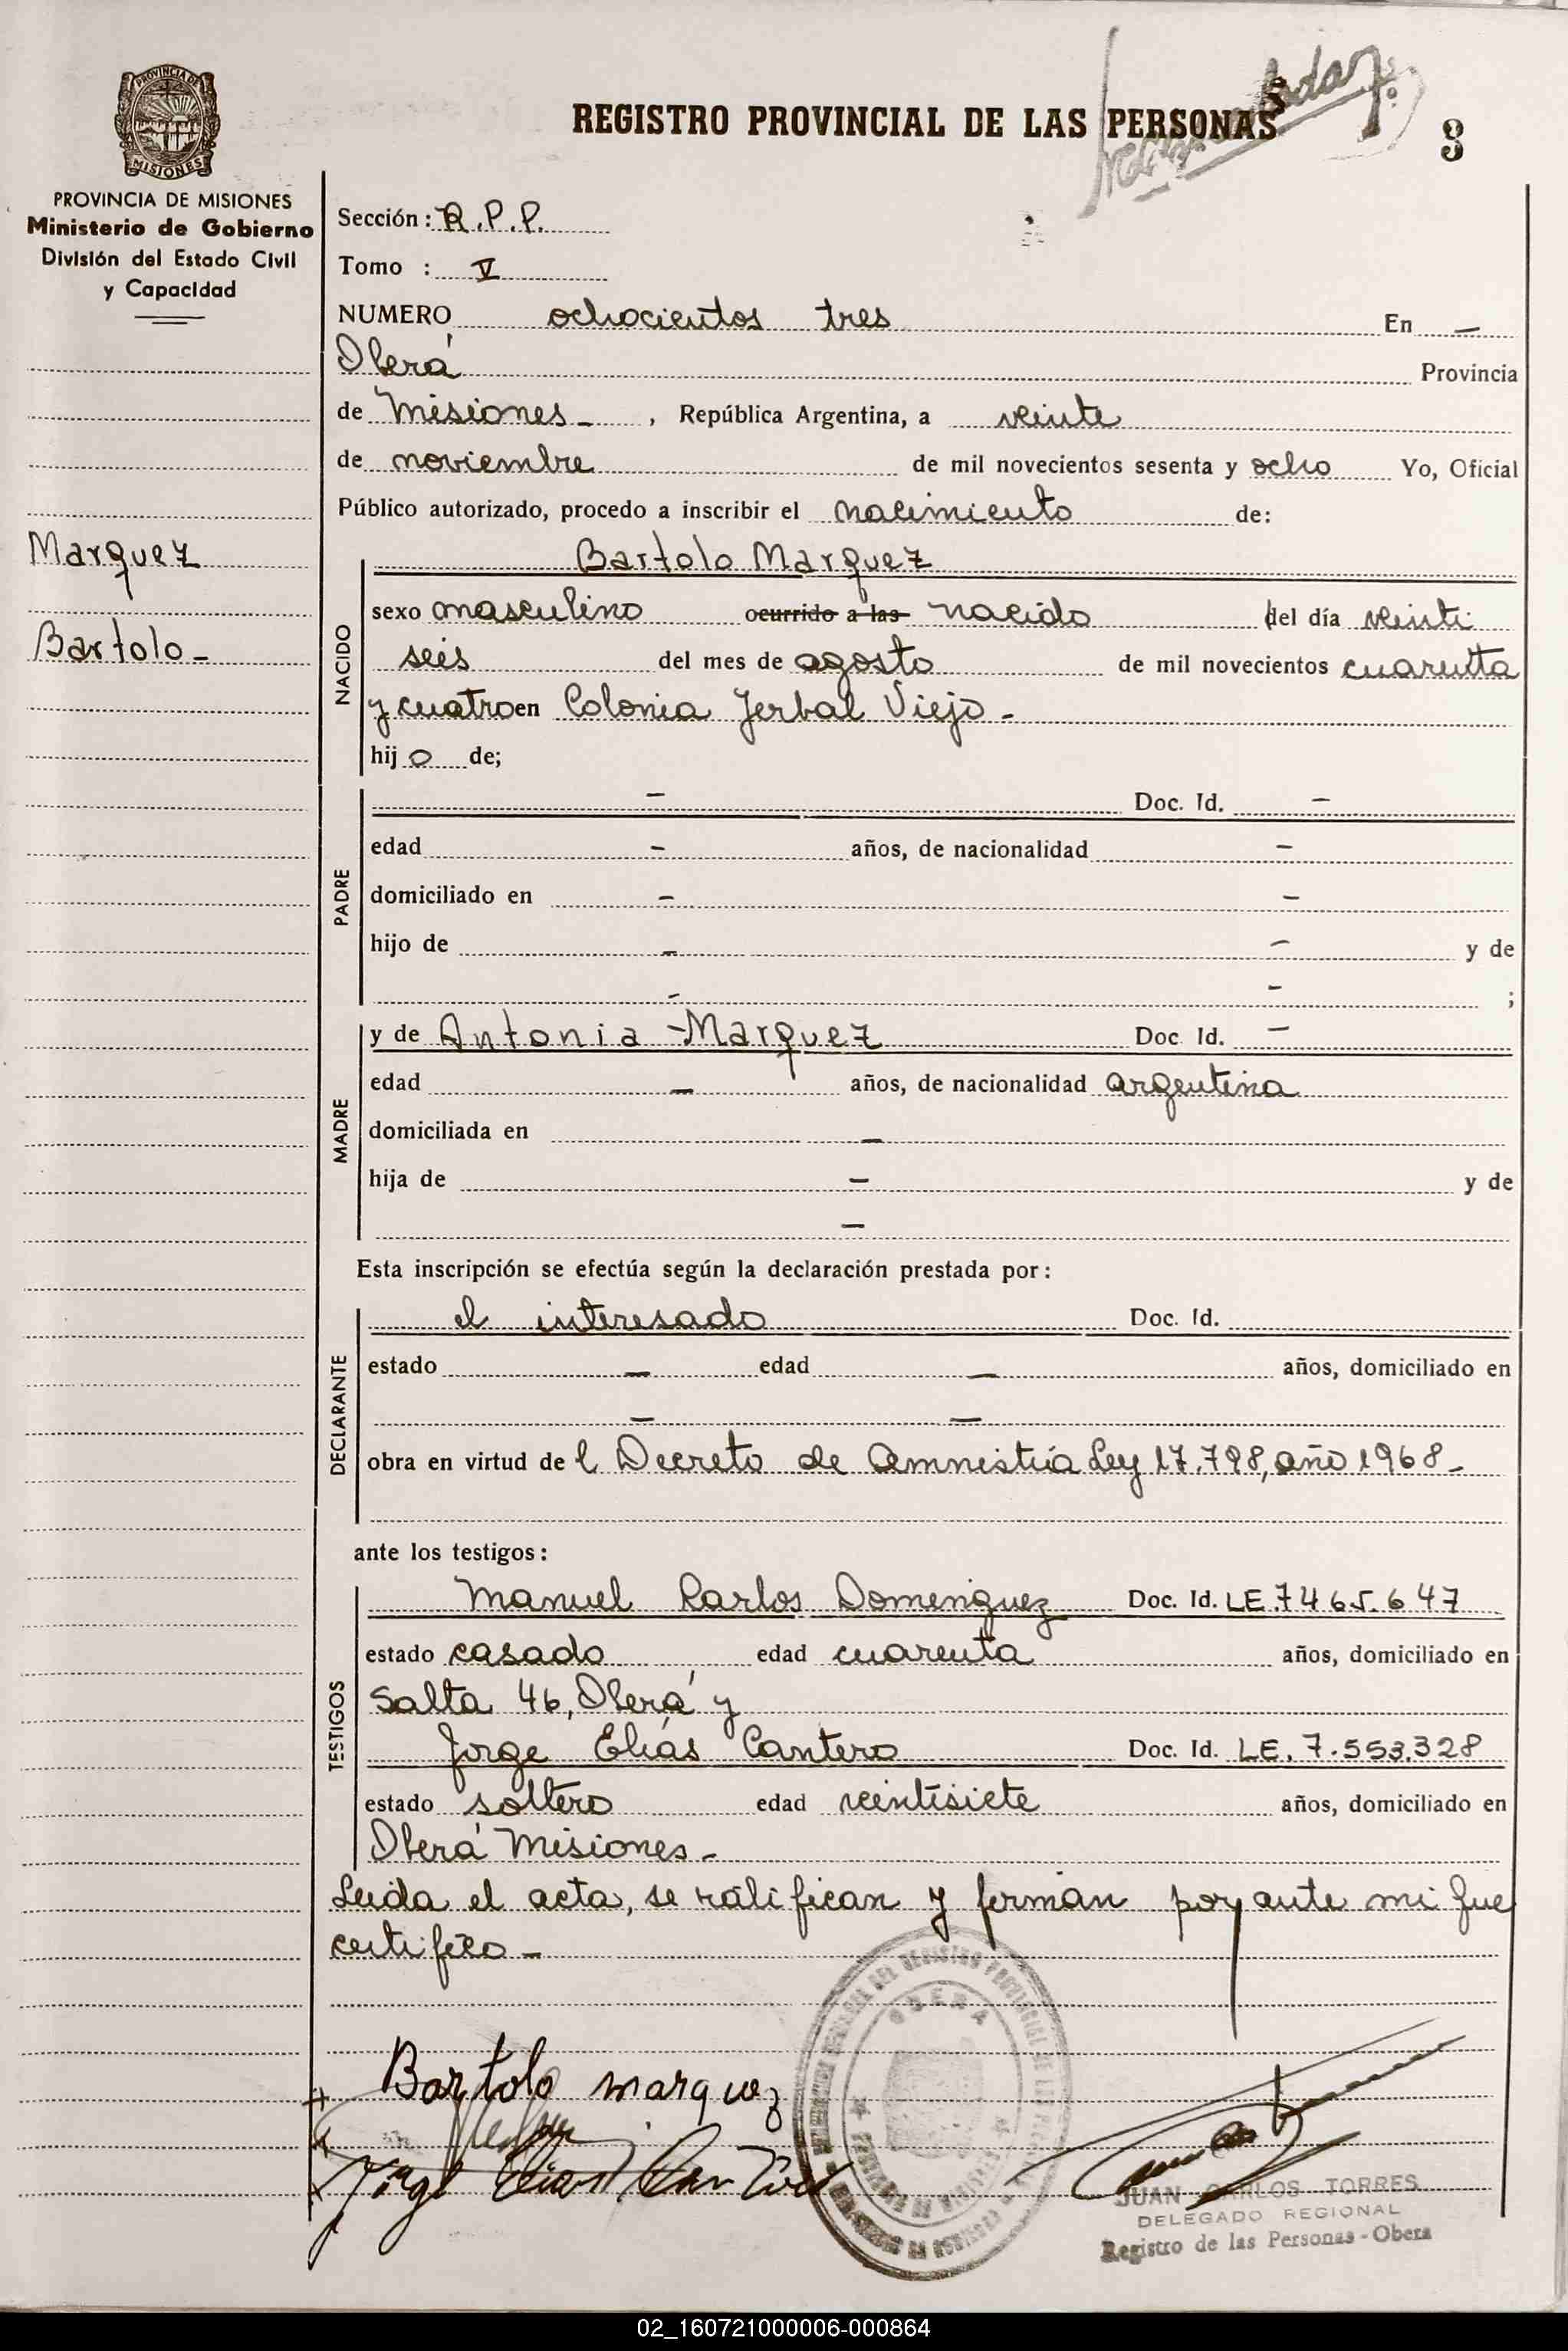 REGISTRO PROVINCIAL DE LAS PERSONAS
3
PROVINCIA DE
MISIONES
PROVINCIA DE MISIONES
Ministerio de Gobierno
División del Estado Civil
y Capacidad
Marquez
Bartolo -
Sección: R.P.P.
Tomo : V
NUMERO ochocientos tres En —
Oberá Provincia
de Misiones - , República Argentina, a veinte
de noviembre de mil novecientos sesenta y ocho Yo, Oficial
Público autorizado, procedo a inscribir el nacimiento de:
NACIDO
Bartolo Marquez
sexo masculino ocurrido a las nacido del día veinti
seis del mes de agosto de mil novecientos cuarenta
y cuatro en Colonia Yerbal Viejo -
hij o de;
PADRE
— Doc. Id. —
edad — años, de nacionalidad —
domiciliado en — —
hijo de — — y de
— — ;
MADRE
y de Antonia Marquez Doc Id. —
edad — años, de nacionalidad argentina
domiciliada en —
hija de — y de
—
Esta inscripción se efectúa según la declaración prestada por:
DECLARANTE
el interesado Doc. Id.
estado — edad — años, domiciliado en
— —
obra en virtud de l Decreto de Amnistía Ley 17.798, año 1968 -
ante los testigos:
TESTIGOS
Manuel Carlos Domenguez Doc. Id. LE.7465.647
estado casado edad cuarenta años, domiciliado en
Salta 46, Oberá y
Jorge Elías Cantero Doc. Id. LE. 7.553.328
estado soltero edad veintisiete años, domiciliado en
Oberá Misiones -
Leída el acta, se ratifican y firman por ante mi que
certifico -
Bartolo marquez
Jorge Elias Cantero
OBERA
JUAN CARLOS TORRES
DELEGADO REGIONAL
Registro de las Personas - Obera
02_160721000006-000864